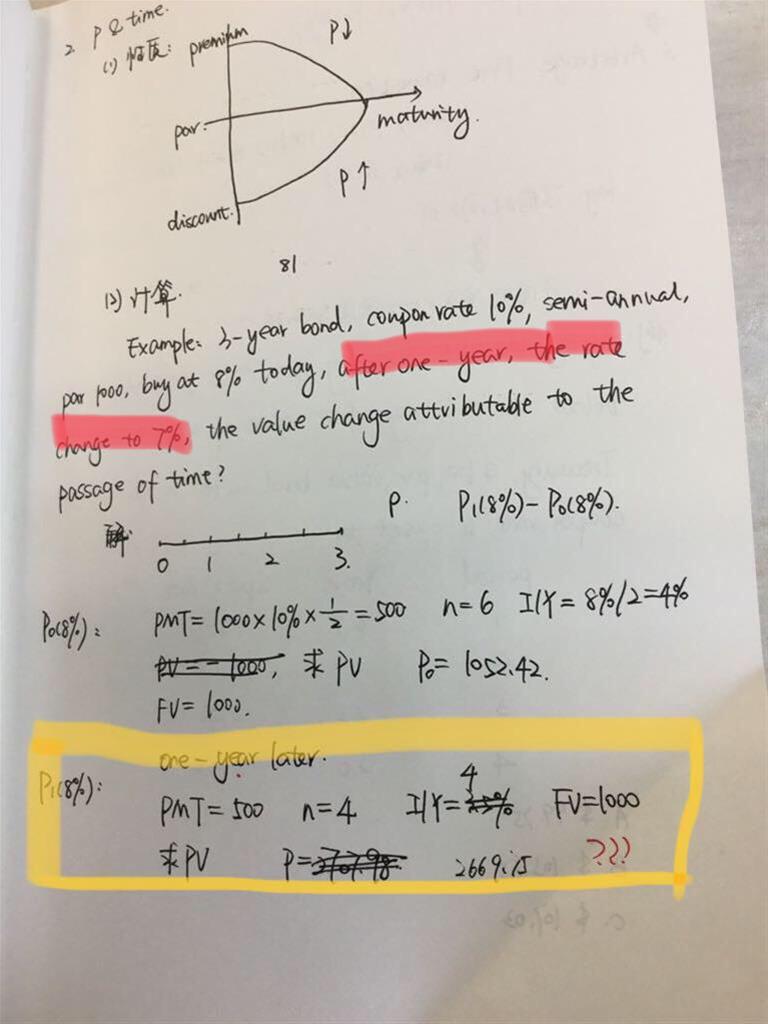 2. P & time.
(1) 性质:
premium
P↓
par.
maturity.
P↑
discount.
81
(2) 计算.
Example: 3-year bond, coupon rate 10%, semi-annual,
par 1000, buy at 8% today, after one-year, the rate
change to 7%, the value change attributable to the
passage of time?
P. P₁(8%)-P₀(8%).
解:
0 1 2 3.
P₀(8%): PMT=1000×10%×1/2=500 n=6 I/Y=8%/2=4%
PV=-1000, 求PV P₀=1052.42.
FV=1000.
one-year later.
P₁(8%): PMT=500 n=4 I/Y= 4 FV=1000
求PV P= 2669.15 ???